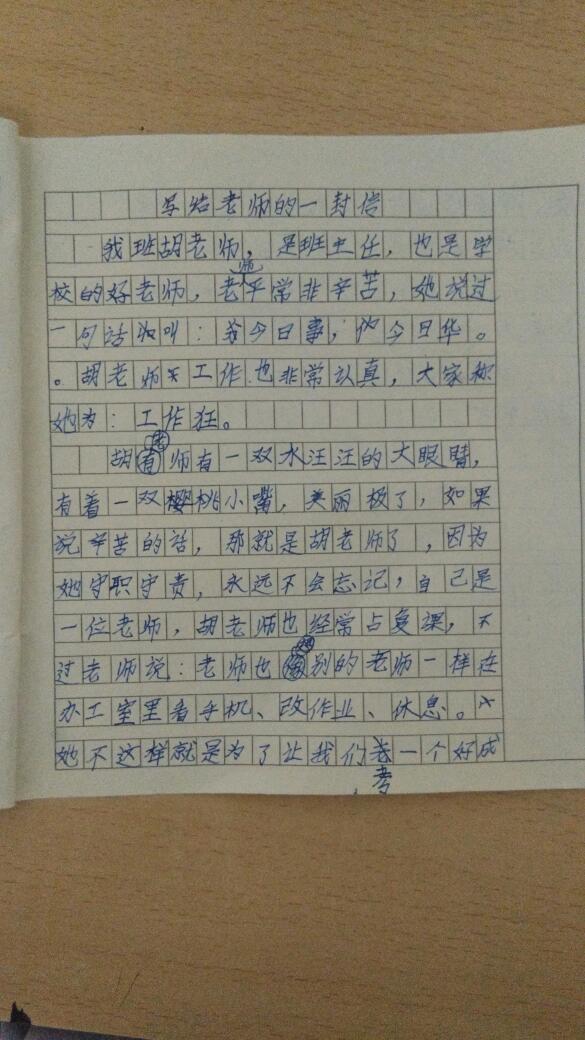 写给老师的一封信
我班胡老师，是班主任，也是学
校的好老师，老师平常非辛苦，她说过
一句话叫：今日事，今日毕。
。胡老师工作也非常认真，大家称
她为：工作狂。
胡老师有一双水汪汪的大眼睛，
有着一双樱桃小嘴，美丽极了，如果
说辛苦的话，那就是胡老师了，因为
她守职守责，永远不会忘记，自己是
一位老师，胡老师也经常占复课，不
过老师说：老师也想像别的老师一样在
办工室里看手机、改作业、休息。
她不这样就是为了让我们考一个好成